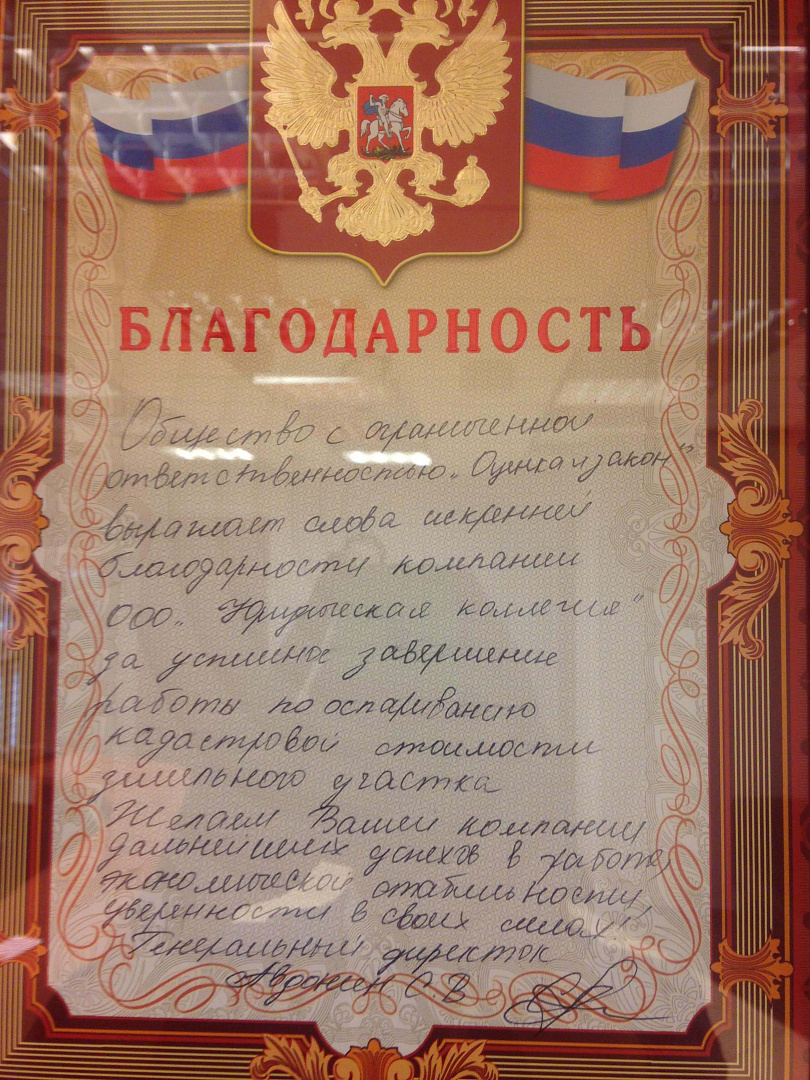 БЛАГОДАРНОСТЬ
Общество с ограниченной
ответственностью „Оценка и закон"
выражает слова искренней
благодарности компании
ООО „Юридическая коллегия"
за успешное завершение
работы по оспариванию
кадастровой стоимости
земельного участка
Желаем Вашей компании
дальнейших успехов в работе,
экономической стабильности,
уверенности в своих силах!
Генеральный директор
Авдонин С В